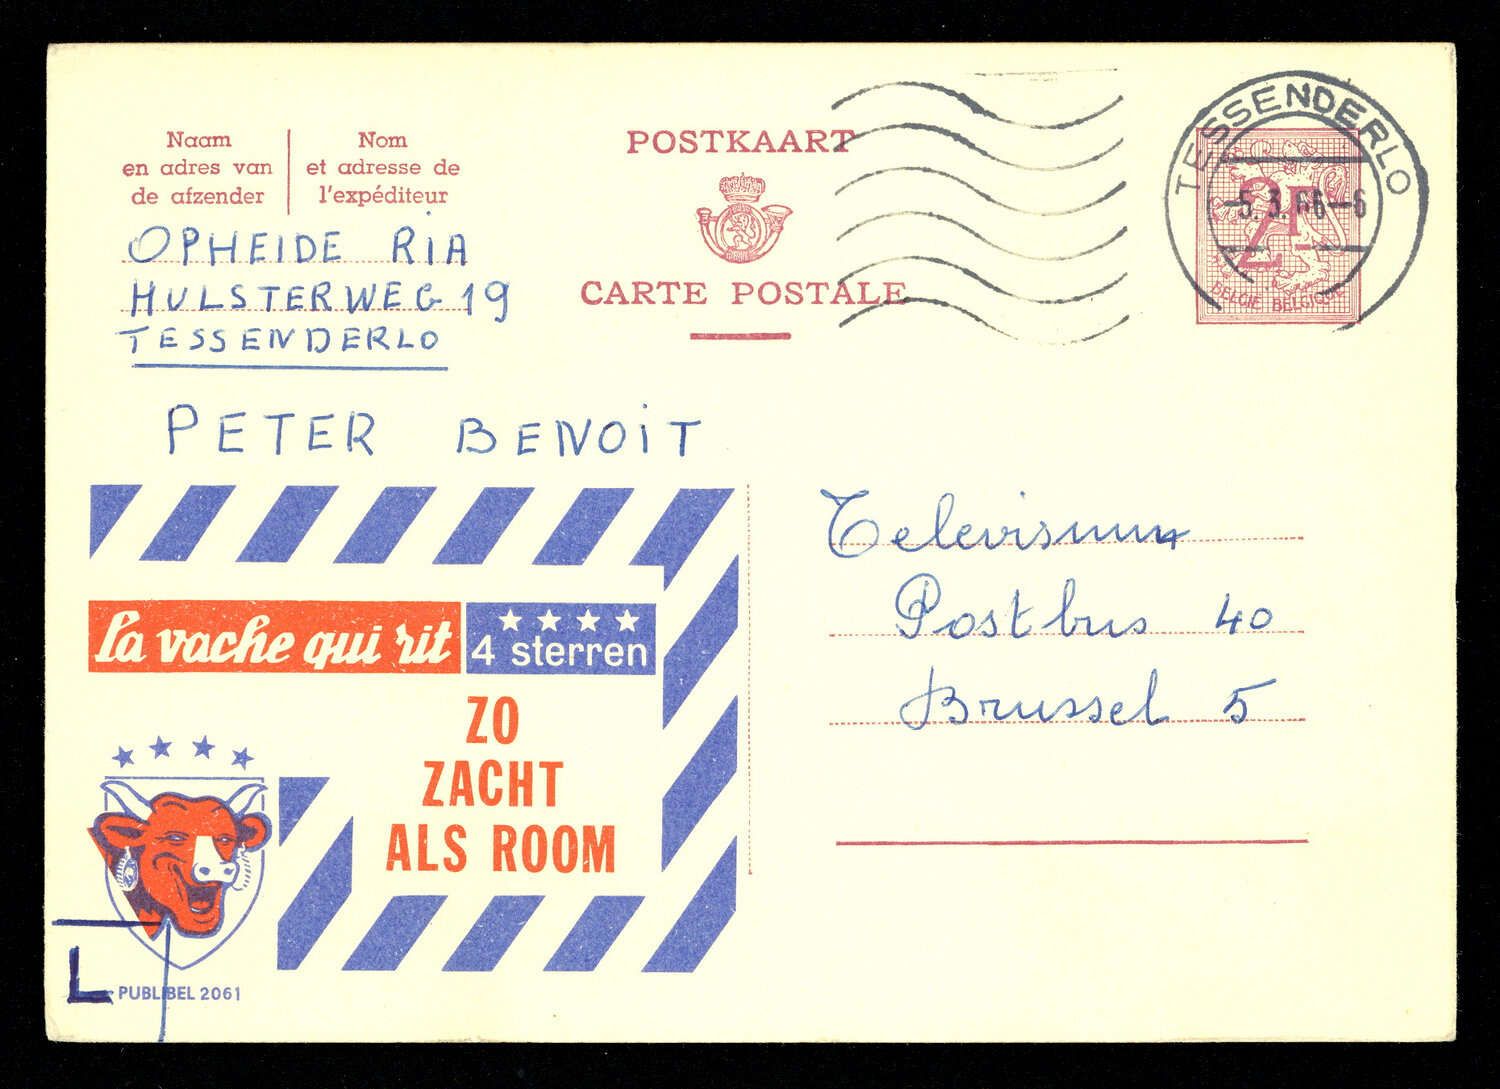 Naam
en adres van
de afzender
Nom
et adresse de
l'expéditeur
OPHEIDE RIA
HULSTERWEG 19
TESSENDERLO
POSTKAART
CARTE POSTALE
TESSENDERLO
-5.3.66-6
2F
BELGIE BELGIQUE
PETER BENOiT
La vache qui rit
4 sterren
ZO
ZACHT
ALS ROOM
L
PUBLIBEL 2061
Televisum
Postbus 40
Brussel 5